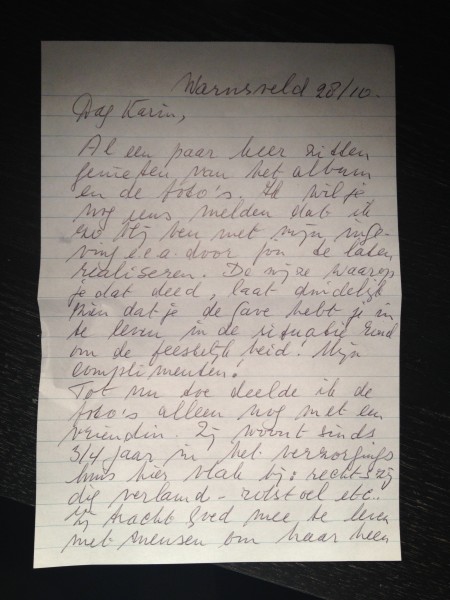 Warnsveld 28/10.
Dag Karin,
Al een paar keer zitten
genieten van het album
en de foto's. Ik wil je
nog eens melden dat ik
zo blij ben met mijn inge-
ving e.e.a. door jou te laten
realiseren. De wijze waarop
je dat deed, laat duidelijk
zien dat je de gave hebt je in
te leven in de situatie rond
om de feestelijkheid! Mijn
complimenten!
Tot nu toe deelde ik de
foto's alleen nog met een
vriendin. Zij woont sinds
3/4 jaar in het verzorgings
huis hier vlak bij: rechtszij
dig verlamd - rolstoel etc.
Zij tracht goed mee te leven
met mensen om haar heen